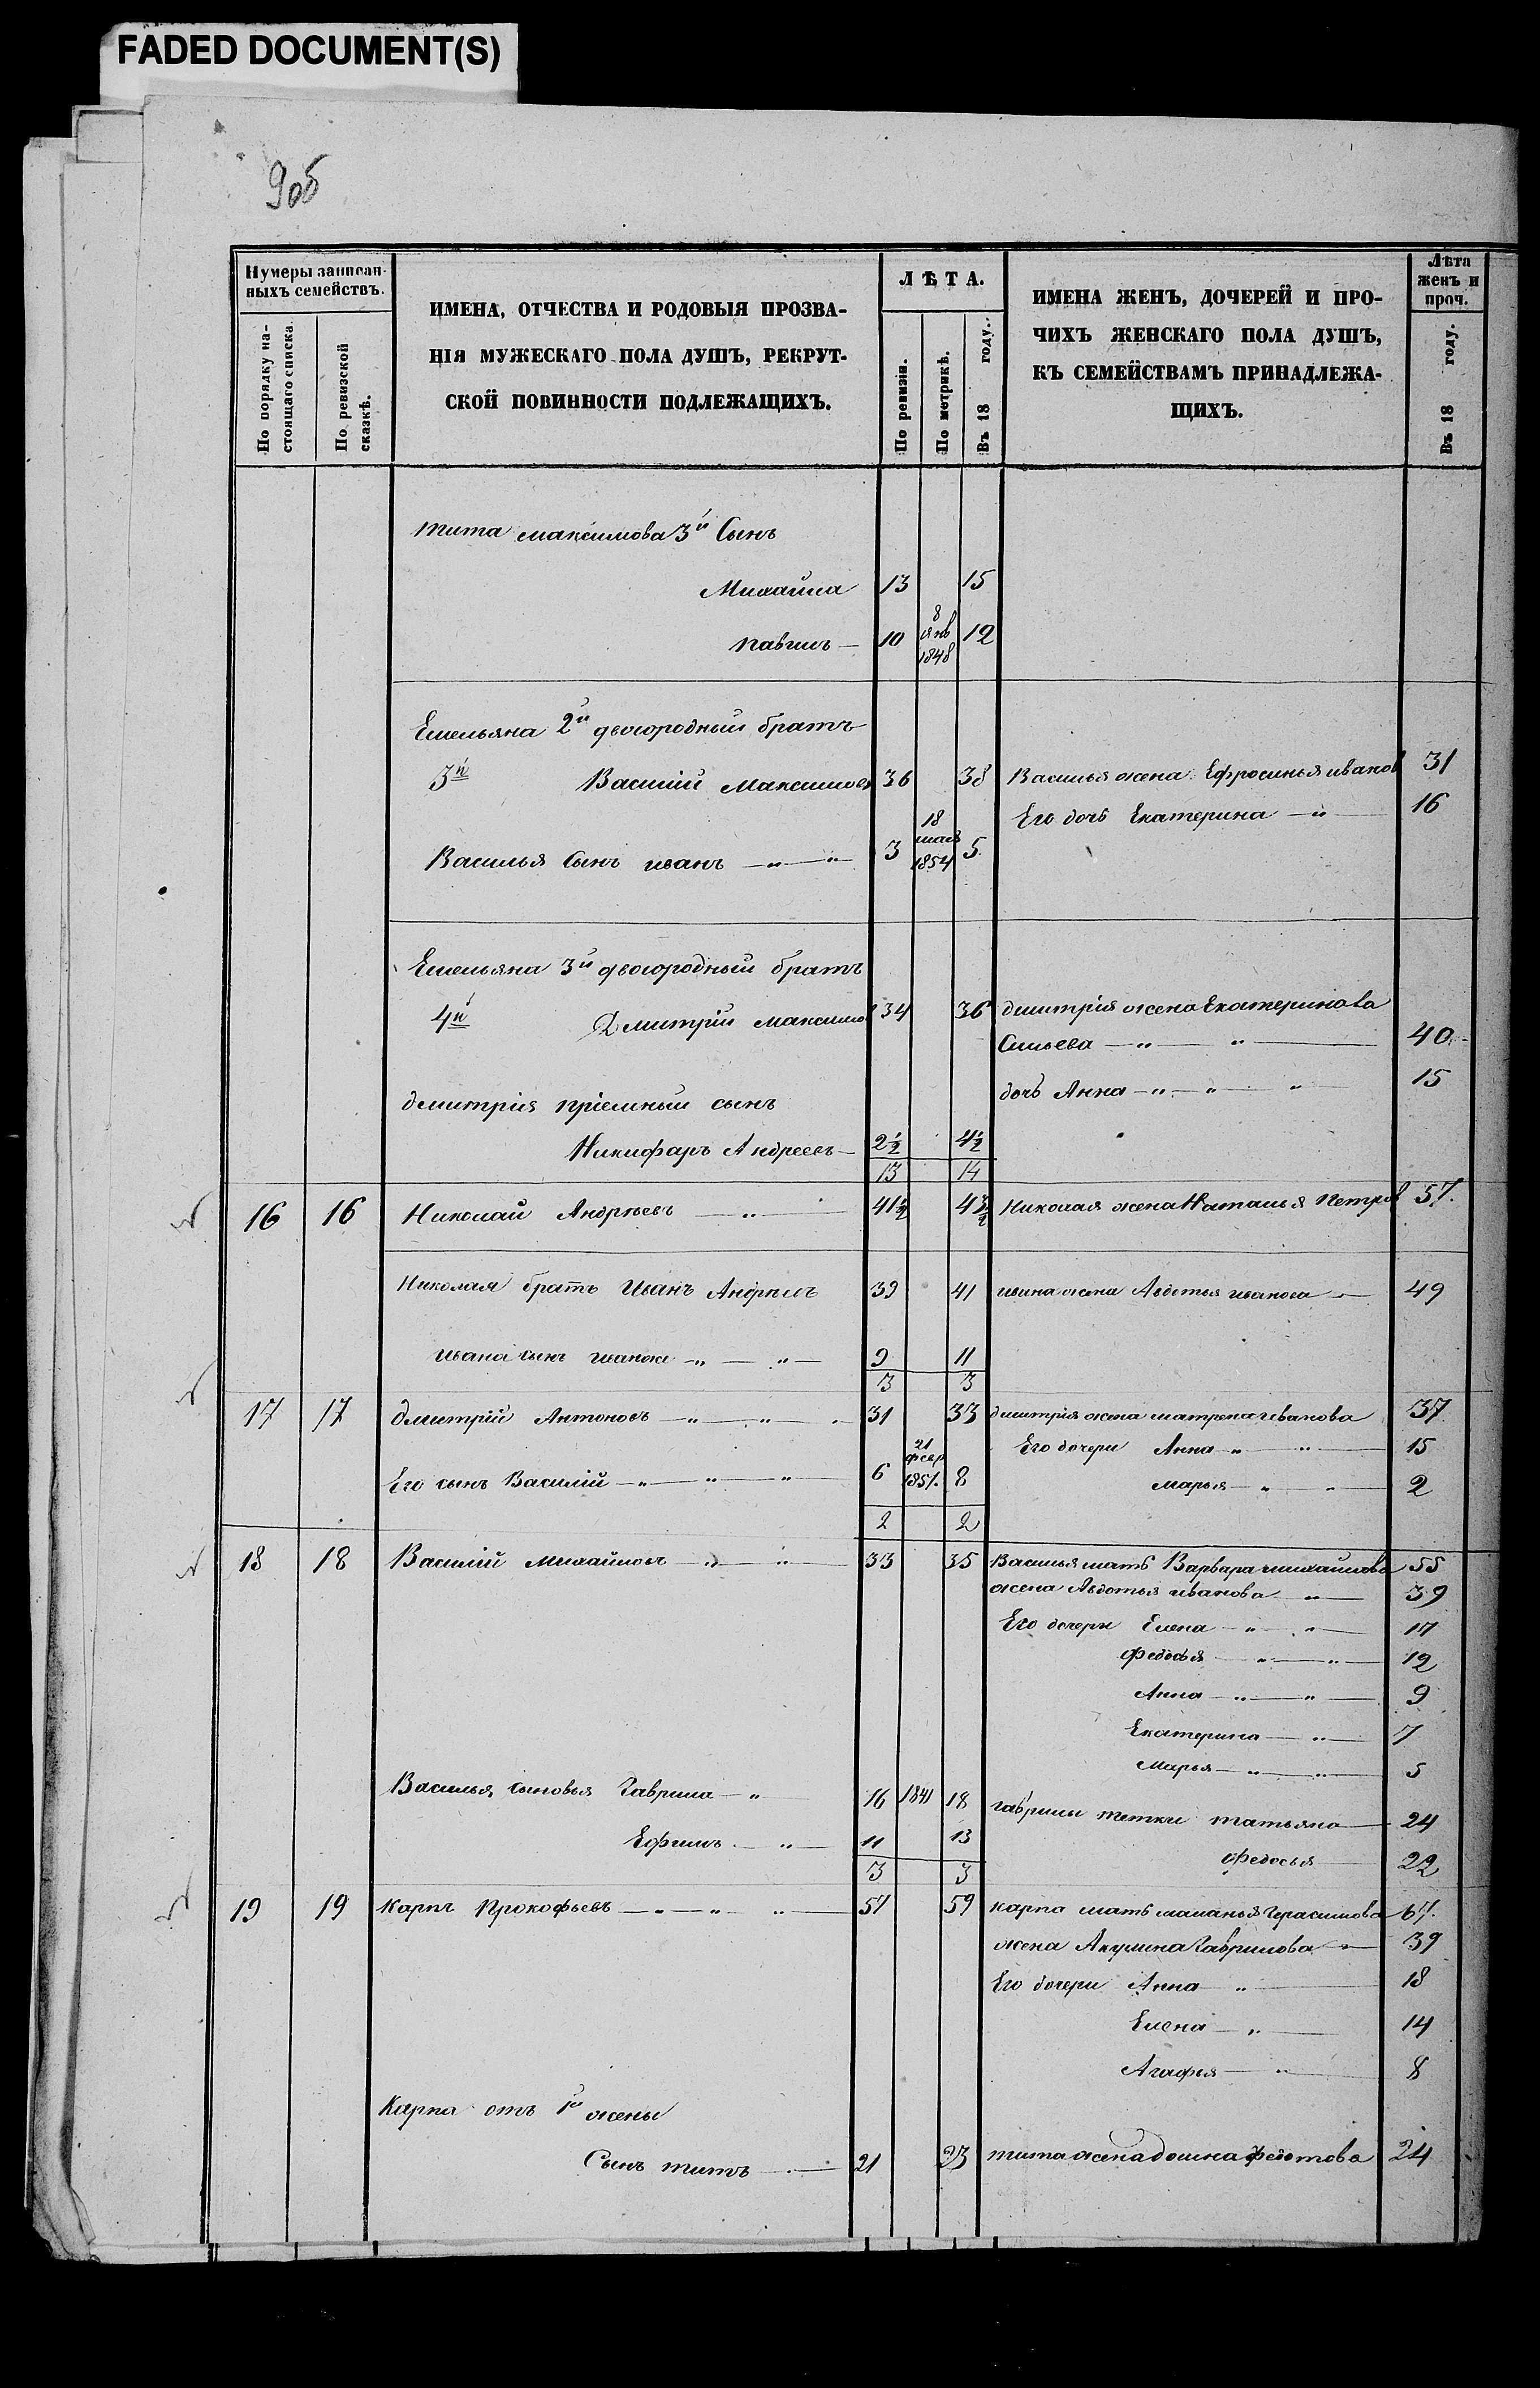 FADED DOCUMENT(S)
9об
Нумеры записан-
ныхъ семействъ.
По порядку на-
стоящаго списка.
По ревизской
сказкѣ.
ИМЕНА, ОТЧЕСТВА И РОДОВЫЯ ПРОЗВА-
НІЯ МУЖЕСКАГО ПОЛА ДУШЪ, РЕКРУТ-
СКОЙ ПОВИННОСТИ ПОДЛЕЖАЩИХЪ.
ЛѢТА.
По ревизіи.
По метрикѣ.
Въ 18 году.
ИМЕНА ЖЕНЪ, ДОЧЕРЕЙ И ПРО-
ЧИХЪ ЖЕНСКАГО ПОЛА ДУШЪ,
КЪ СЕМЕЙСТВАМЪ ПРИНАДЛЕЖА-
ЩИХЪ.
Лѣта
женъ и
проч.
Въ 18 году.
тита максимова 3й Сынъ
Михайла 13 15
павилъ — 10 8 янв 1848 12
Емельяна 2й двоюродный братъ
3й Василій Максимовъ 36 38 Василья жена Ефросинья иванов 31
Его дочь Екатерина — " — 16
Василья Сынъ иванъ — " — " 3 18 мая 1854 5
Емельяна 3й двоюродный братъ
4й Дмитрій максимов 34 36 дмитрія жена Екатерина ва
Сильева — " — " — 40
дочь Анна — " — " — " — 15
дмитрія пріемный сынъ
Никифаръ Андреевъ — 2½ 4½
13 14
16 16 Николай Андрѣевъ — " — 41½ 43½ Николая жена Наталья Петров 57.
Николая братъ Иванъ Андрѣевъ 39 41 ивана жена Авдотья иванова — 49
ивана сынъ иванъ — " — " — 9 11
3 3
17 17 дмитрій Антоновъ — " — " — 31 33 дмитрія жена матрена иванова 37
Его дочери Анна " — " — 15
Его сынъ Василій — " — " — " 6 21 фев 1851. 8
марья — " — " — 2
2 2
18 18 Василій михайловъ — " — " — 33 35 Василья мать Варвара михаилова 55
жена Авдотья иванова — " — 39
Его дочери Елена — " — " — 17
Федосья — " — " — 12
Анна — " — " — 9
Екатерина — " — 7
Марья — " — " — 5
Василья сыновья Гаврила — " 16 1841 18 гаврилы тетки татьяна — 24
Ефимъ — " — 11 13
Федосья 22
3 3
19 19 карпъ Прокофьевъ — " — " — " — 57 59 карпа мать маланья Герасимова 67.
жена Акулина Гаврилова — 39
Его дочери Анна " — 18
Елена — " — 14
Агафья — " — 8
Карпа отъ 1й жены
Сынъ титъ — 21 23 тита жена домна федотова 24